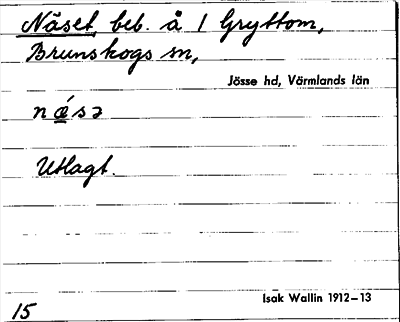 Näset, beb. å 1 Gryttom,
Brunskogs sn,
Jösse hd, Värmlands län
nǽ̲sə
Utlagt.
Isak Wallin 1912–13
15